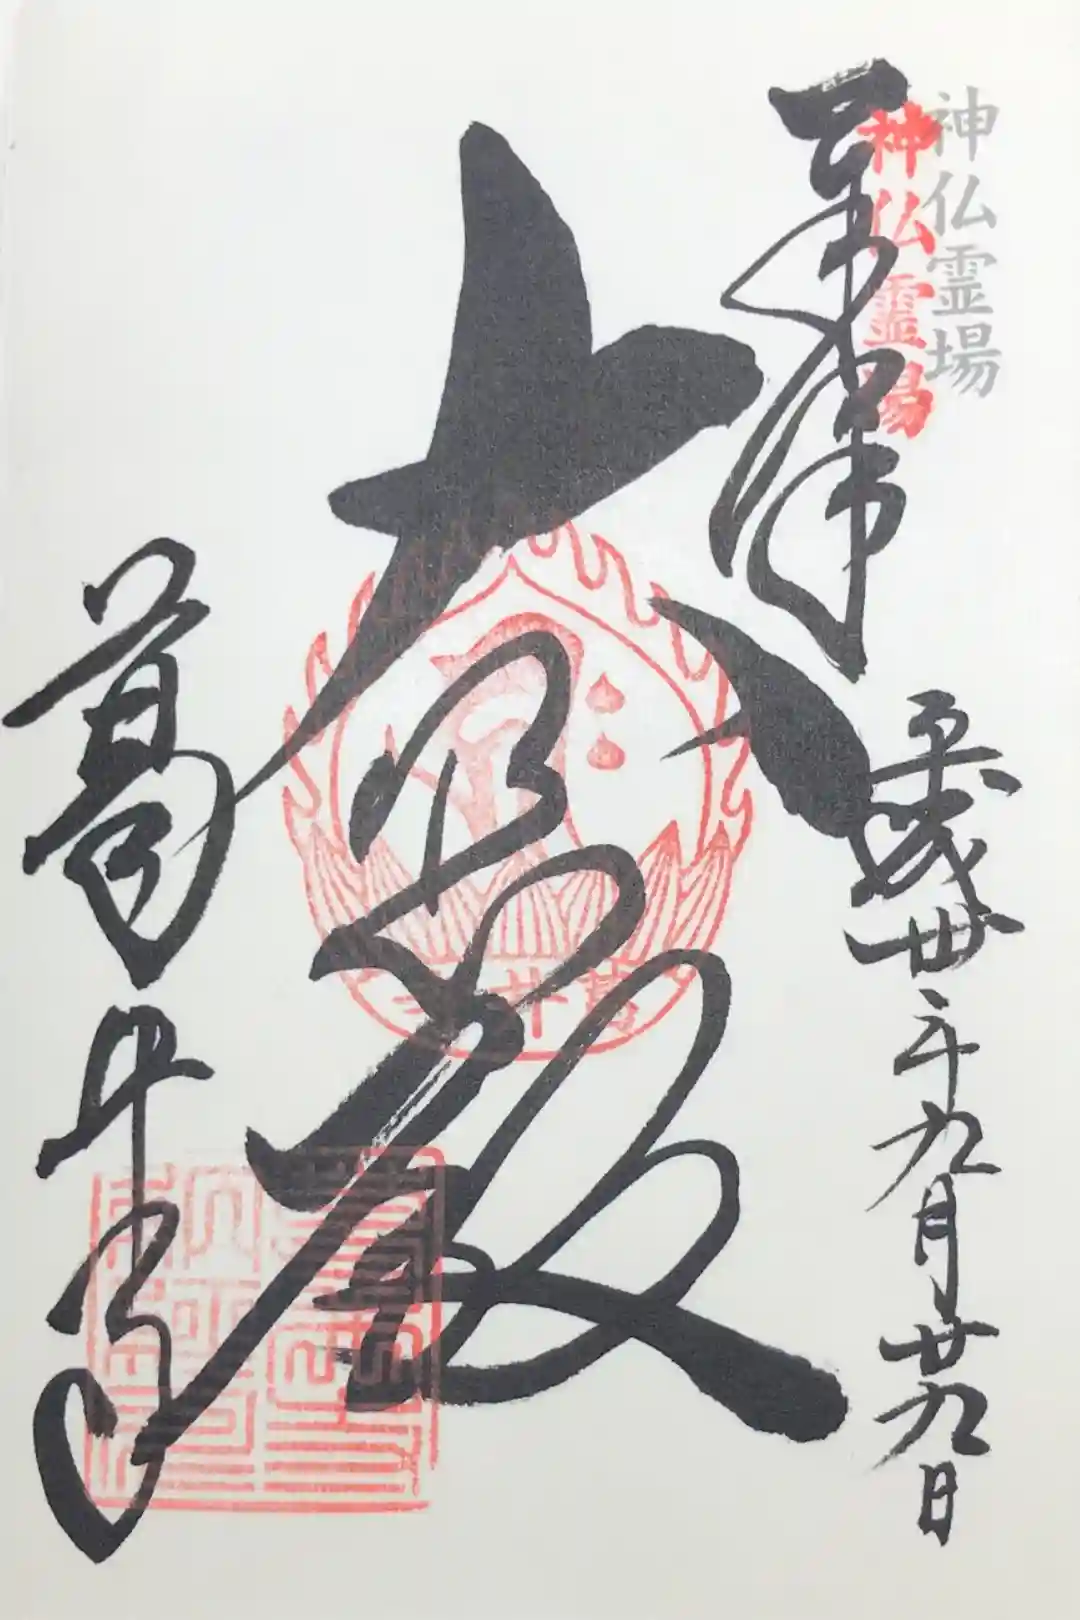 神仏霊場
神仏霊場
奉拝
平成丗年九月廿九日
大悲殿
葛井寺
葛井寺